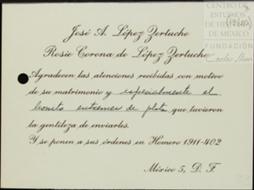 José A. López Zertuche
Rosie Corona de López Zertuche
Agradecen las atenciones recibidas con motivo
de su matrimonio y especialmente el
bonito entremés de plata que tuvieron
la gentileza de enviarles.
Y se ponen a sus órdenes en Homero 1911-402
México 5, D. F.
CENTRO DE
ESTUDIOS
DE HISTORIA
DE MÉXICO
FUNDACIÓN